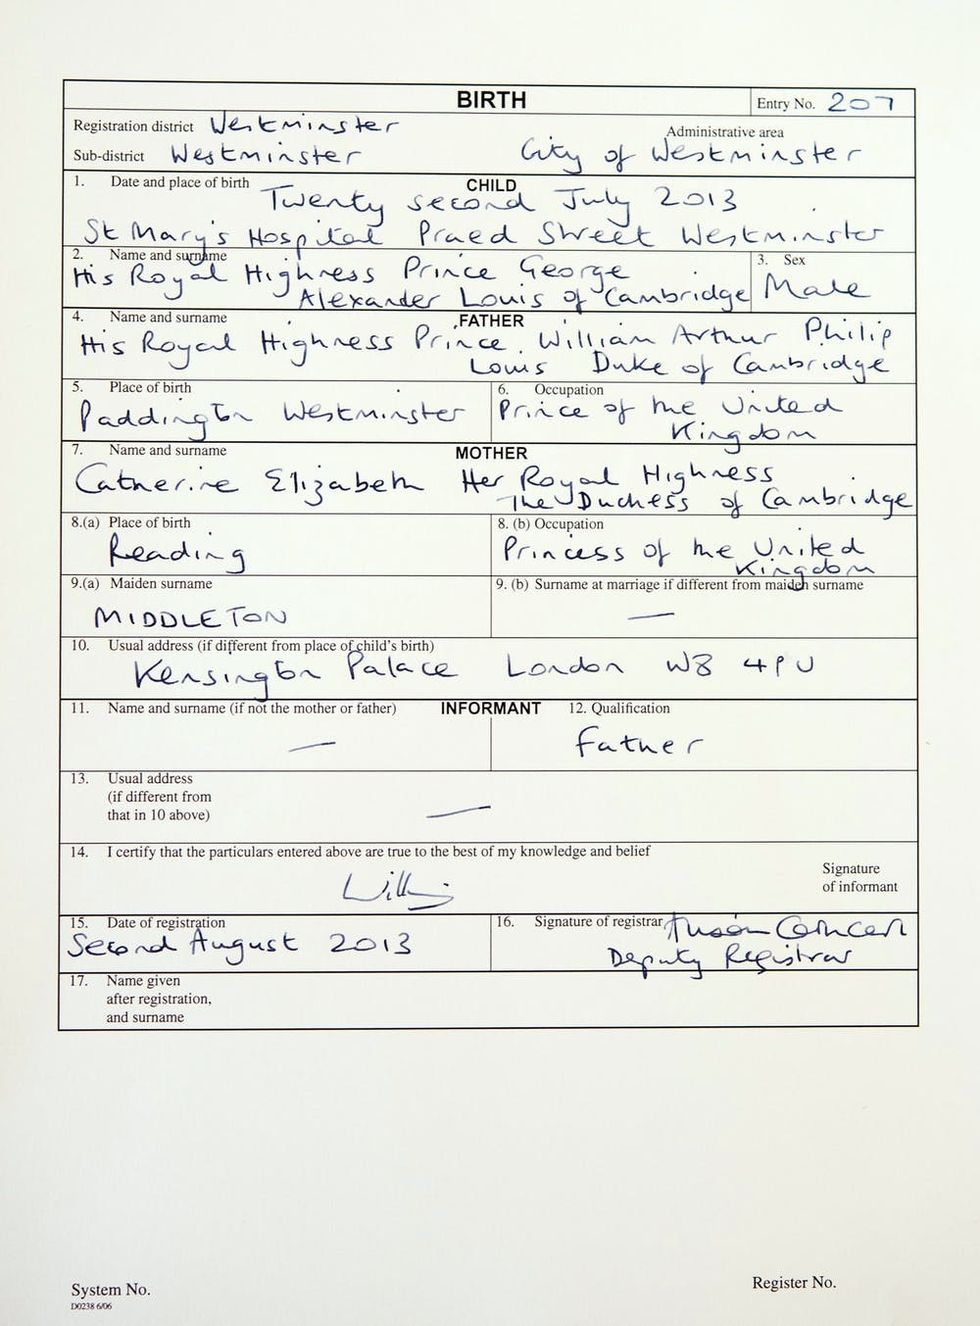 BIRTH
Entry No. 207
Registration district Westminster
Administrative area
Sub-district Westminster
City of Westminster
1. Date and place of birth
CHILD
Twenty second July 2013
St Mary's Hospital Praed Street Westminster
2. Name and surname
3. Sex
His Royal Highness Prince George
Alexander Louis of Cambridge
Male
4. Name and surname
FATHER
His Royal Highness Prince William Arthur Philip
Louis Duke of Cambridge
5. Place of birth
6. Occupation
Paddington Westminster
Prince of the United
Kingdom
7. Name and surname
MOTHER
Catherine Elizabeth Her Royal Highness
The Duchess of Cambridge
8.(a) Place of birth
8. (b) Occupation
Reading
Princess of the United
Kingdom
9.(a) Maiden surname
9. (b) Surname at marriage if different from maiden surname
MIDDLETON
—
10. Usual address (if different from place of child's birth)
Kensington Palace London W8 4PU
11. Name and surname (if not the mother or father)
INFORMANT
12. Qualification
—
Father
13. Usual address
(if different from
that in 10 above)
—
14. I certify that the particulars entered above are true to the best of my knowledge and belief
Signature
of informant
15. Date of registration
16. Signature of registrar
Second August 2013
Deputy Registrar
17. Name given
after registration,
and surname
System No.
D0238 6/06
Register No.